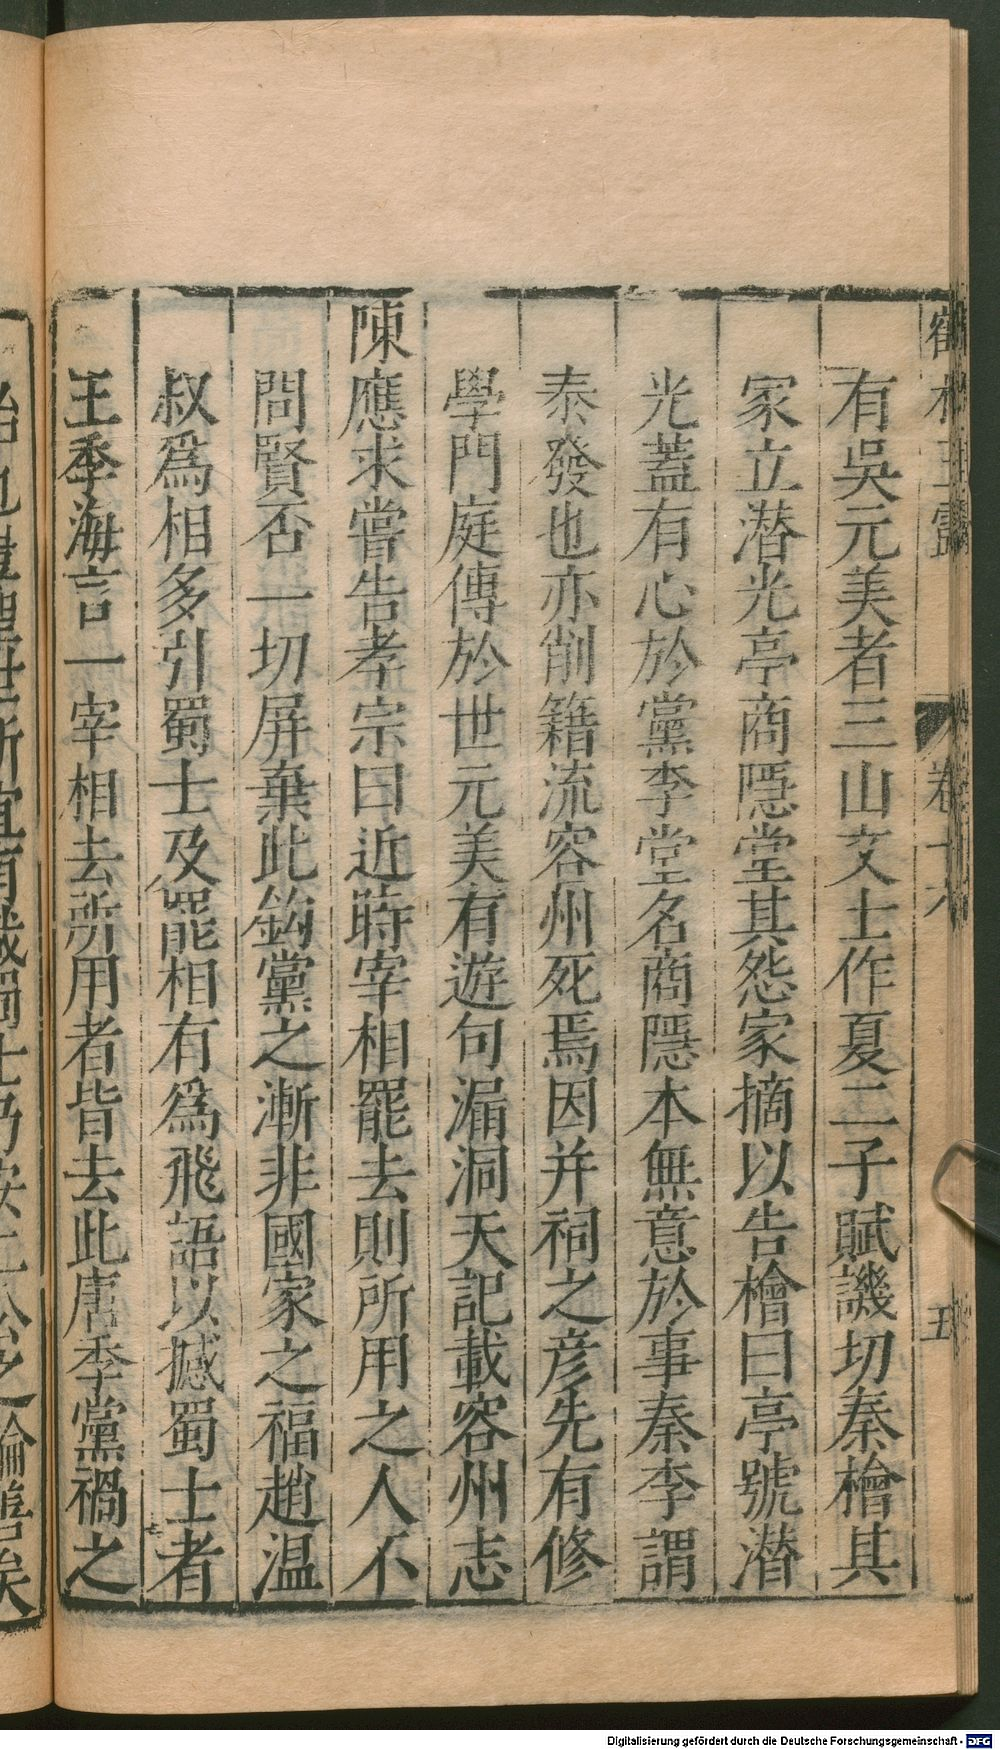 有吳元美者三山文士作夏二子賦譏切秦檜其
家立潜光亭商隱堂其怨家摘以告檜曰亭號潜
光蓋有心於黨李堂名商隱本無意於事秦李謂
泰發也亦削籍流容州死焉因并祠之彥先有修
學門庭傳於世元美有遊句漏洞天記載容州志
陳應求嘗告孝宗曰近時宰相罷去則所用之人不
問賢否一切屏棄此鈎黨之漸非國家之福趙温
叔爲相多引蜀士及罷相有爲飛語以撼蜀士者
王季海言一宰相去所用者皆去此唐季黨禍之
Digitalisierung gefördert durch die Deutsche Forschungsgemeinschaft - DFG